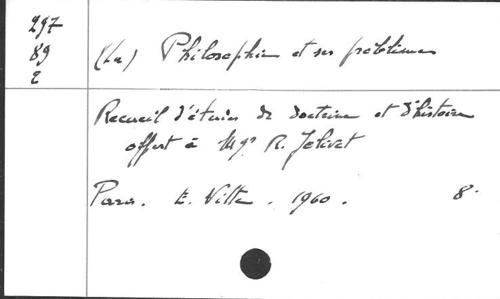 297
89
2
(La) Philosophie et ses problèmes
Recueil d'études de doctrine et d'histoire
offert à Mgr R. Jolivet
Paris. E. Vitte. 1960. 8°